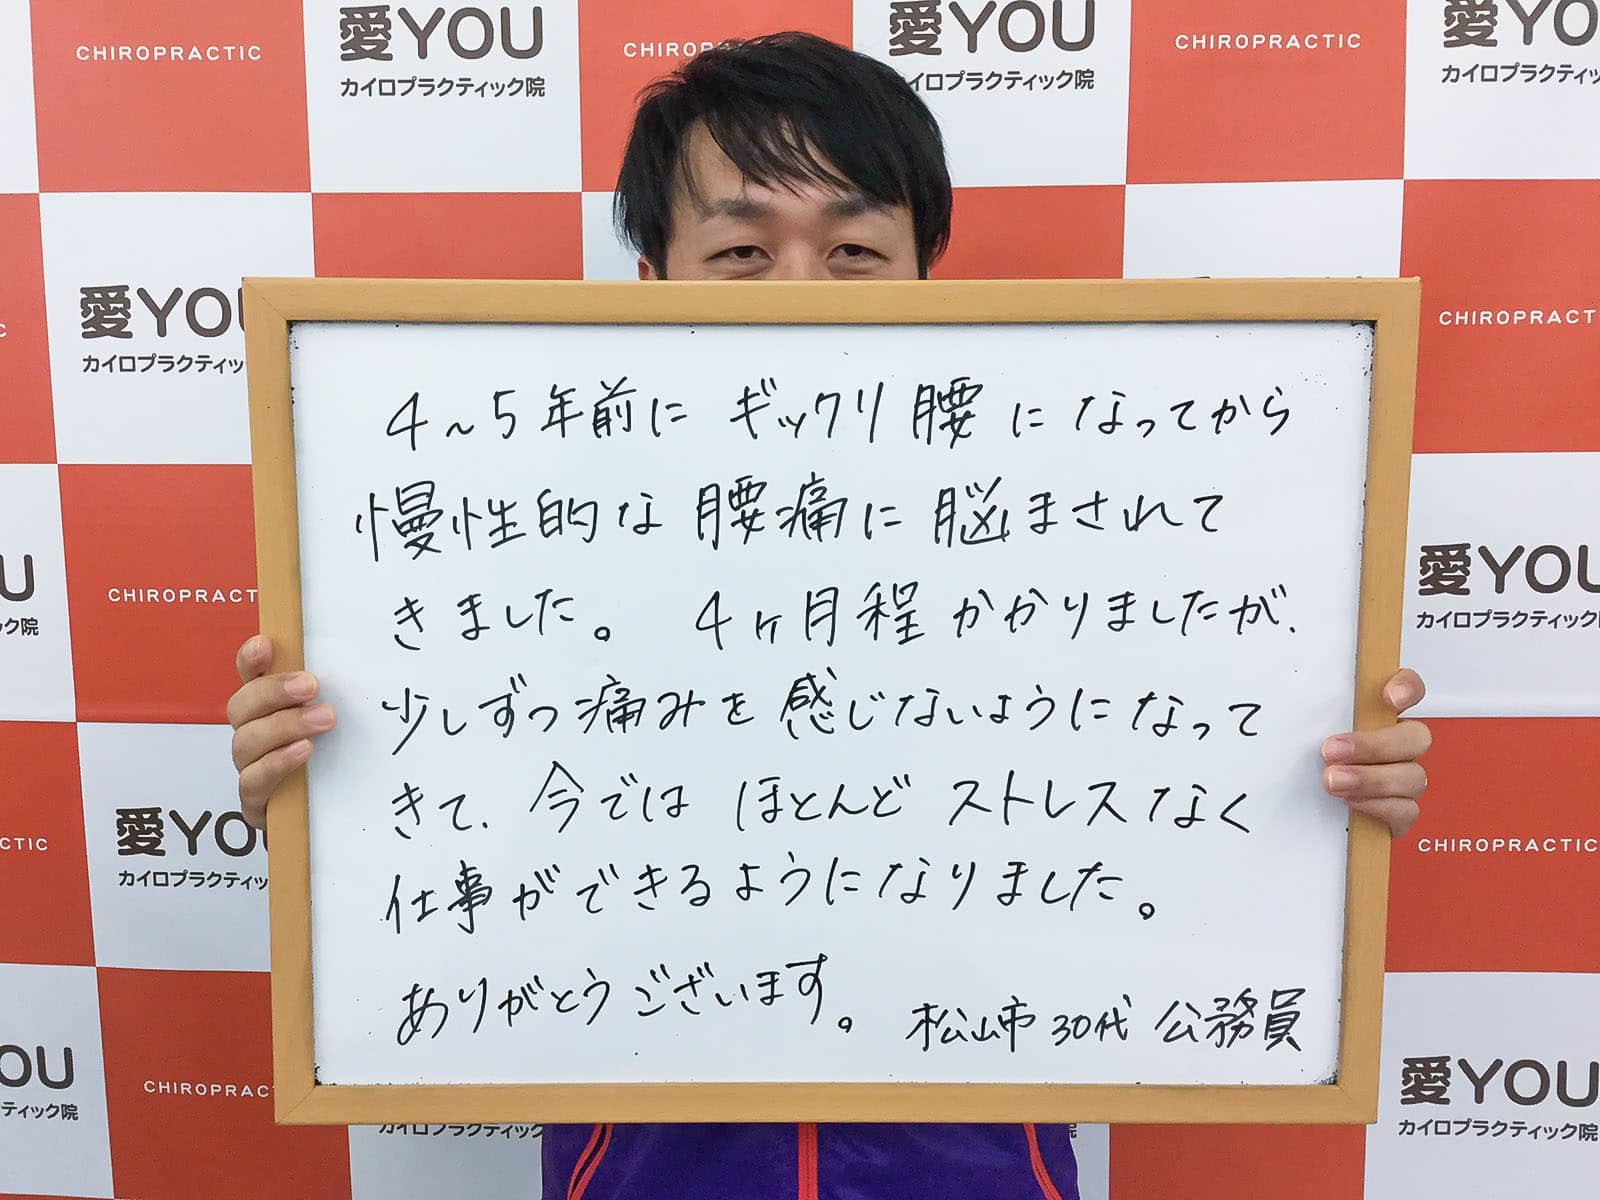 CHIROPRACTIC
愛YOU
カイロプラクティック院
CHIROPRACTIC
愛YOU
カイロプラクティック院
CHIROPRACTIC
愛YOU
カイロプラクティック院
愛YOU
カイロプラクティック院
CHIROPRACTIC
4~5年前にギックリ腰になってから
慢性的な腰痛に脳まされて
きました。4ヶ月程かかりましたが、
少しずつ痛みを感じないようになって
きて、今ではほとんどストレスなく
仕事ができるようになりました。
ありがとうございます。
松山市30代 公務員
CHIROPRACTIC
愛YOU
カイロプラクティック院
愛YOU
カイロプラクティック院
CHIROPRACTIC
CHIROPRACTIC
愛YOU
カイロプラクティック院
カイロプラクティック院